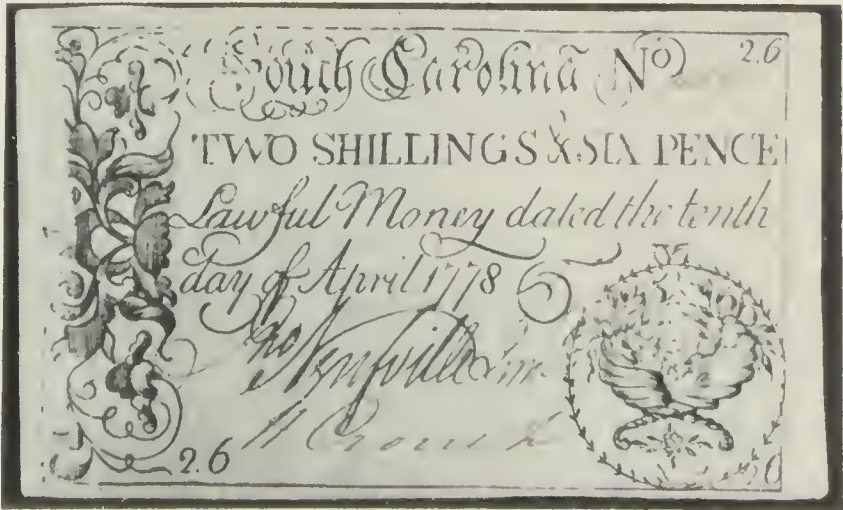 South Carolina No 2.6
TWO SHILLINGS & SIX PENCE
Lawful Money dated the tenth
day of April 1778
Jno Neufville Junr.
2.6